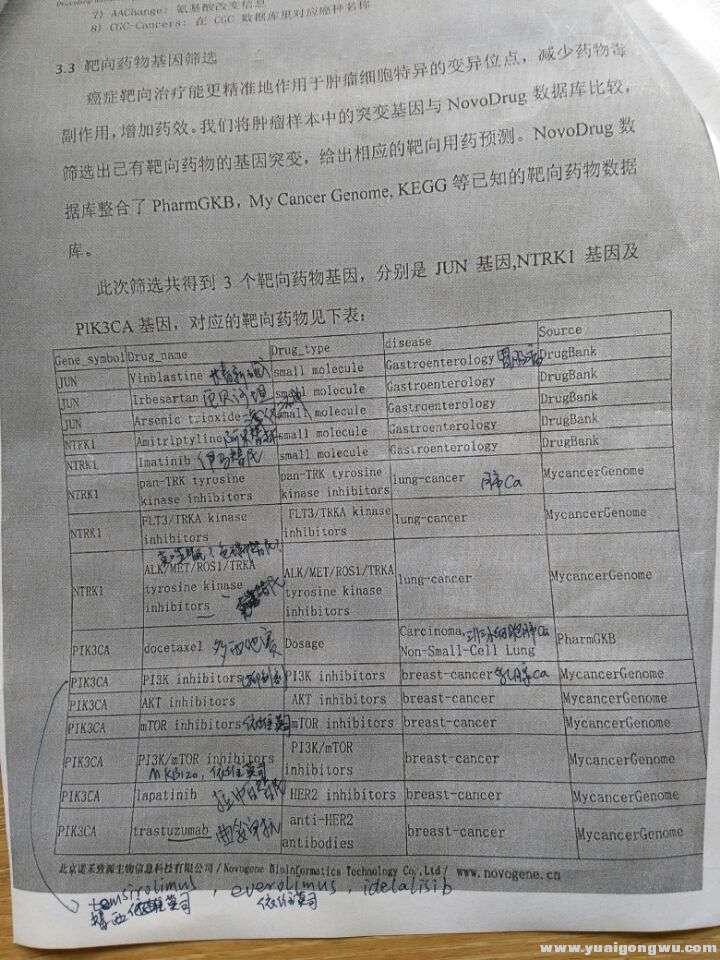 7) AAChange: 氨基酸改变信息
8) CGC-Cancers: 在 CGC 数据库里对应癌种名称
3.3 靶向药物基因筛选
癌症靶向治疗能更精准地作用于肿瘤细胞特异的变异位点，减少药物毒
副作用,增加药效。我们将肿瘤样本中的突变基因与 NovoDrug 数据库比较,
筛选出已有靶向药物的基因突变，给出相应的靶向用药预测。NovoDrug 数
据库整合了 PharmGKB，My Cancer Genome, KEGG 等已知的靶向药物数据
库。
此次筛选共得到 3 个靶向药物基因，分别是 JUN 基因,NTRK1 基因及
PIK3CA 基因，对应的靶向药物见下表：
Gene_symbol Drug_name Drug_type disease Source
JUN Vinblastine small molecule Gastroenterology DrugBank
JUN Irbesartan 厄贝沙坦 small molecule Gastroenterology DrugBank
JUN Arsenic trioxide small molecule Gastroenterology DrugBank
NTRK1 Amitriptyline small molecule Gastroenterology DrugBank
NTRK1 Imatinib 伊马替尼 small molecule Gastroenterology DrugBank
NTRK1 pan-TRK tyrosine kinase inhibitors pan-TRK tyrosine kinase inhibitors lung-cancer 肺Ca MycancerGenome
NTRK1 FLT3/TRKA kinase inhibitors FLT3/TRKA kinase inhibitors lung-cancer MycancerGenome
NTRK1 ALK/MET/ROS1/TRKA tyrosine kinase inhibitors ALK/MET/ROS1/TRKA tyrosine kinase inhibitors lung-cancer MycancerGenome
PIK3CA docetaxel 多西他赛 Dosage Carcinoma, Non-Small-Cell Lung PharmGKB
PIK3CA PI3K inhibitors PI3K inhibitors breast-cancer 乳腺Ca MycancerGenome
PIK3CA AKT inhibitors AKT inhibitors breast-cancer MycancerGenome
PIK3CA mTOR inhibitors 依维莫司 mTOR inhibitors breast-cancer MycancerGenome
PIK3CA PI3K/mTOR inhibitors 依维莫司 PI3K/mTOR inhibitors breast-cancer MycancerGenome
PIK3CA lapatinib 拉帕替尼 HER2 inhibitors breast-cancer MycancerGenome
PIK3CA trastuzumab 曲妥珠单抗 anti-HER2 antibodies breast-cancer MycancerGenome
北京诺禾致源生物信息科技有限公司 / Novogene Bioinformatics Technology Co.,Ltd/ www.novogene.cn
temsirolimus, everolimus, idelalisib
依维莫司
www.yuaigongwu.com